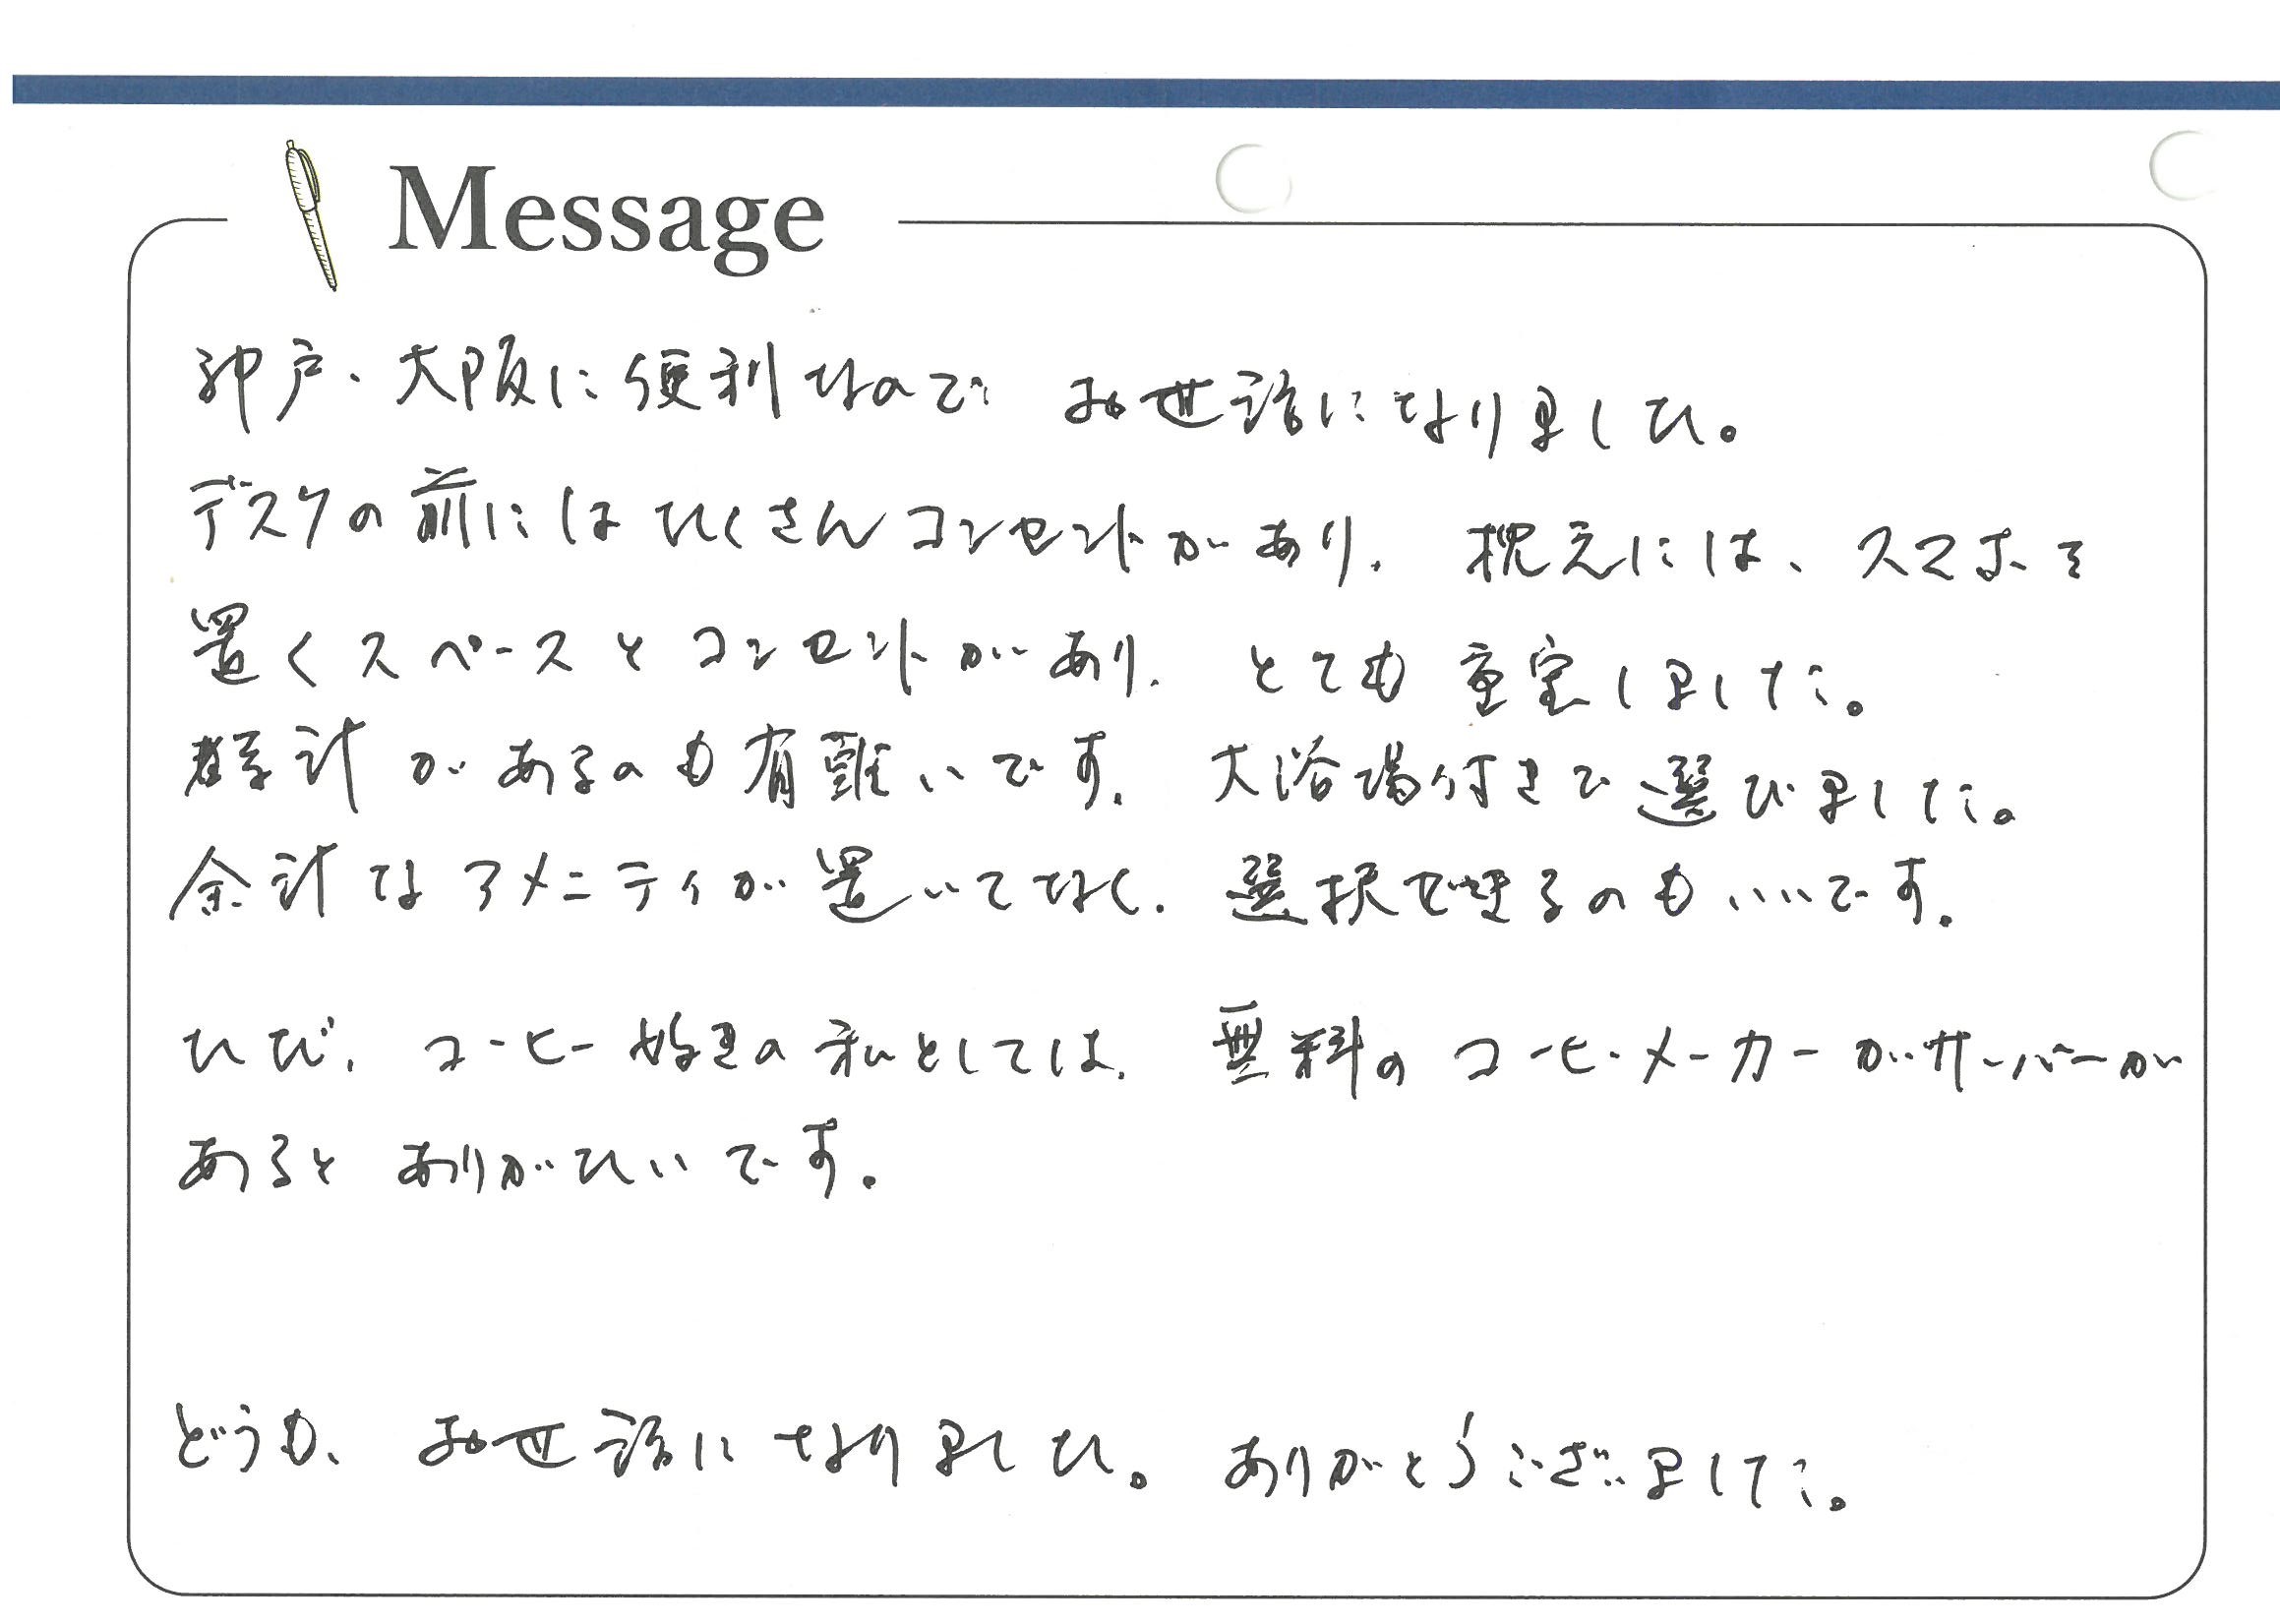 Message
神戸、大阪に便利なので お世話になりました。
デスクの前にはたくさんコンセントがあり、枕元には、スマホを
置くスペースとコンセントがあり、とても重宝しました。
計があるのも有難いです。大浴場付きで選びました。
余計なアメニティが置いてなく、選択できるのもいいです。
ただ、コーヒー好きの私としては、無料のコーヒーメーカーがサーバーが
あるとありがたいです。
どうも、お世話になりました。ありがとうございました。